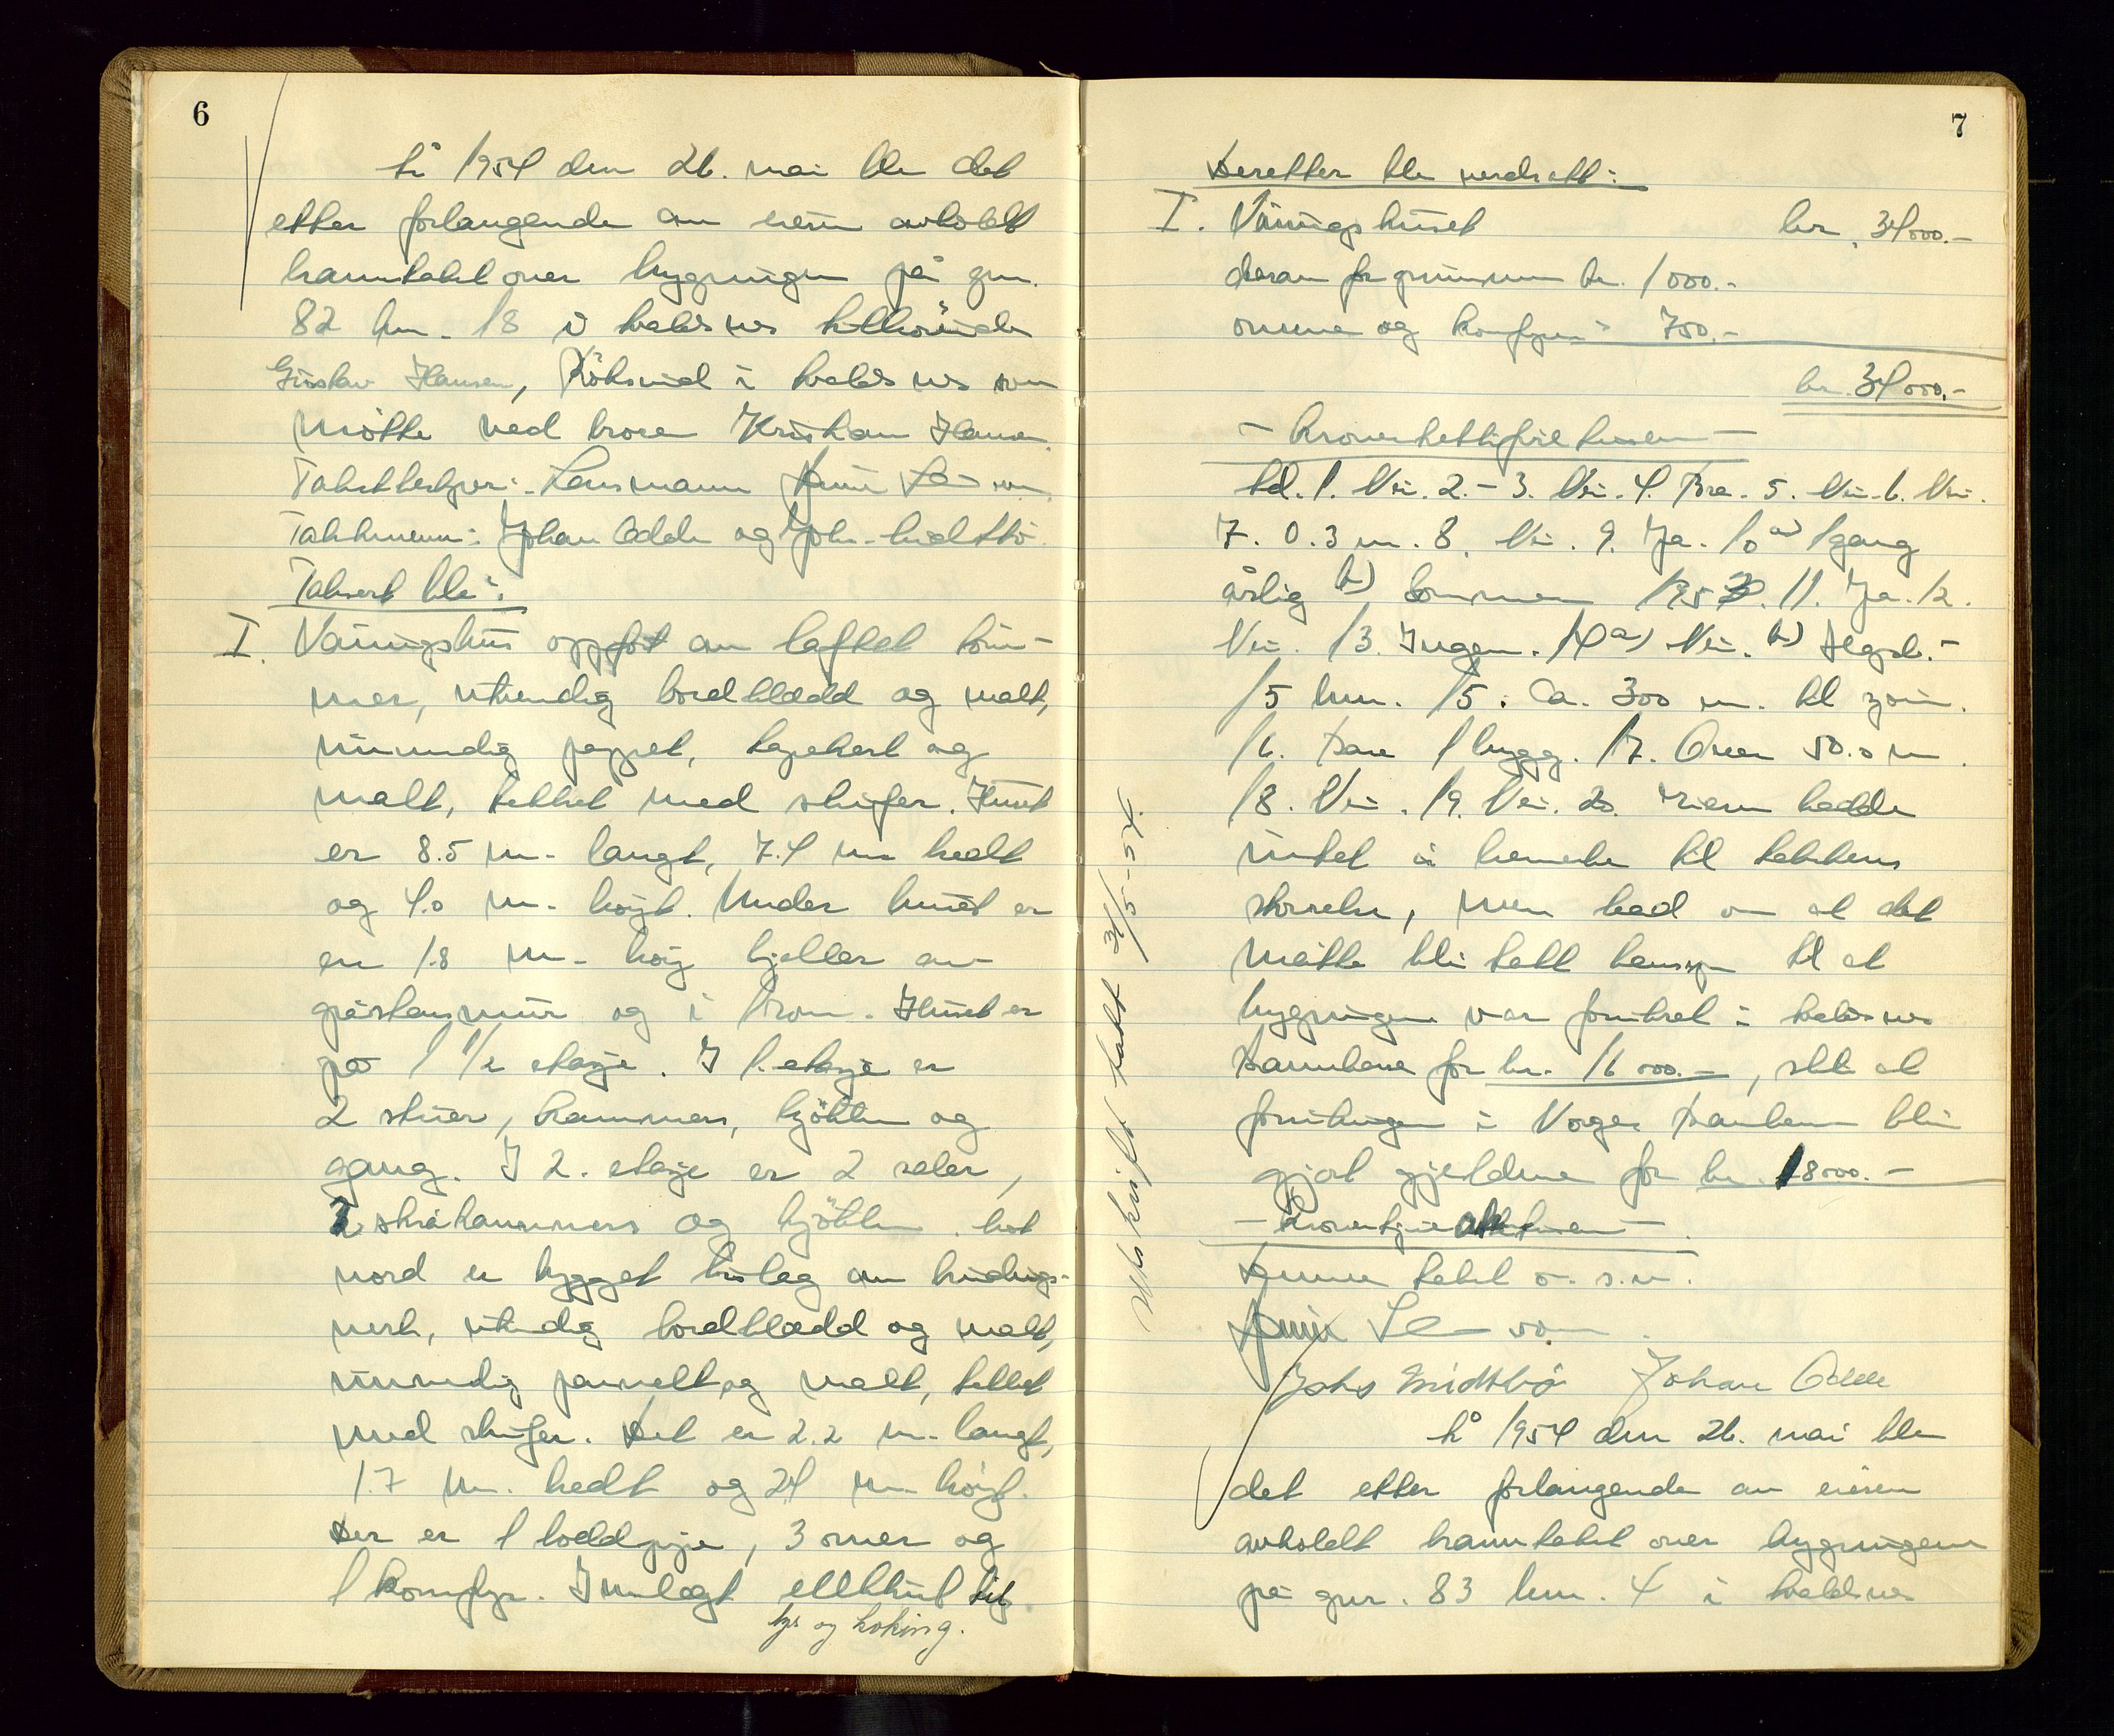 6
År 1954 den 26. mai ble det
etter forlangende av eieren avholdt
branntakst over bygningen på gnr.
82 bnr. 18 i Kvalsnes tilhörende
Gustav Hansen, i Kvalsnes som
møtte ved broren Kristian Hansen.
Takstbestyrer: Lensmann
Takstmenn: Johan Odde og Johs. Midtbö
Taksert ble:
I. Våningshus oppfört av laftet töm-
mer, utvendig bordklædd og malt,
innvendig pappet, tapetsert og
malt, tekket med skifer. Huset
er 8.5 m. langt, 7.4 m. bredt
og 4.0 m. höyt. Under huset er
en 1.8 m. höy kjeller av
gråstensmur og i 1 rom. Huset er
på 1 1/2 etasje. I 1. etasje er
2 stuer, kammers, kjökken og
gang. I 2. etasje er 2 saler,
2 skråkammers og kjökken. Mot
nord er bygget bislag av bindings-
verk, utvendig bordklædd og malt,
innvendig panelt og malt, tekket
med skifer. Det er 2.2 m. langt,
1.7 m. bredt og 2.4 m. höyt.
Der er 1 loddpipe, 3 ovner og
1 komfyr. Innlagt elektrisk til
lys og koking.
7
Deretter ble verdsatt:
I. Våningshuset kr. 34000.-
derav for grunnmur kr. 1000.-
ovner og komfyrer " 700.-
kr. 34000.-
- Brannbestigelsen -
Ad. 1. Nei. 2. - 3. Nei. 4. Bra. 5. Nei. 6. Nei.
7. 0.3 m. 8. Nei. 9. Ja. 10 a) 1 gang
årlig b) Sommeren 1953. 11. Ja. 12.
Nei. 13. Ingen. 14 a) Nei. b)
15 15: Ca. 300 m. til
16. Bare 1 bygg. 17. Over 50.0 m.
18. Nei. 19. Nei. 20. Eieren hadde
intet å bemerke til takstens
störrelse, men bad om at det
måtte bli tatt hensyn til at
bygningen var forsikret i Kvalsnes
Brannkasse for kr. 16000.-, slik at
forsikringen i Norges Brannkasse blir
gjort gjeldende for kr. 18000.-
Denne takst o.s.v.
Johs Midtbö Johan Odde
År 1954 den 26. mai ble
det etter forlangende av eieren
avholdt branntakst over bygningen
på gnr. 83 bnr. 4 i Kvalsnes
Utskrift sendt 31/5-54.